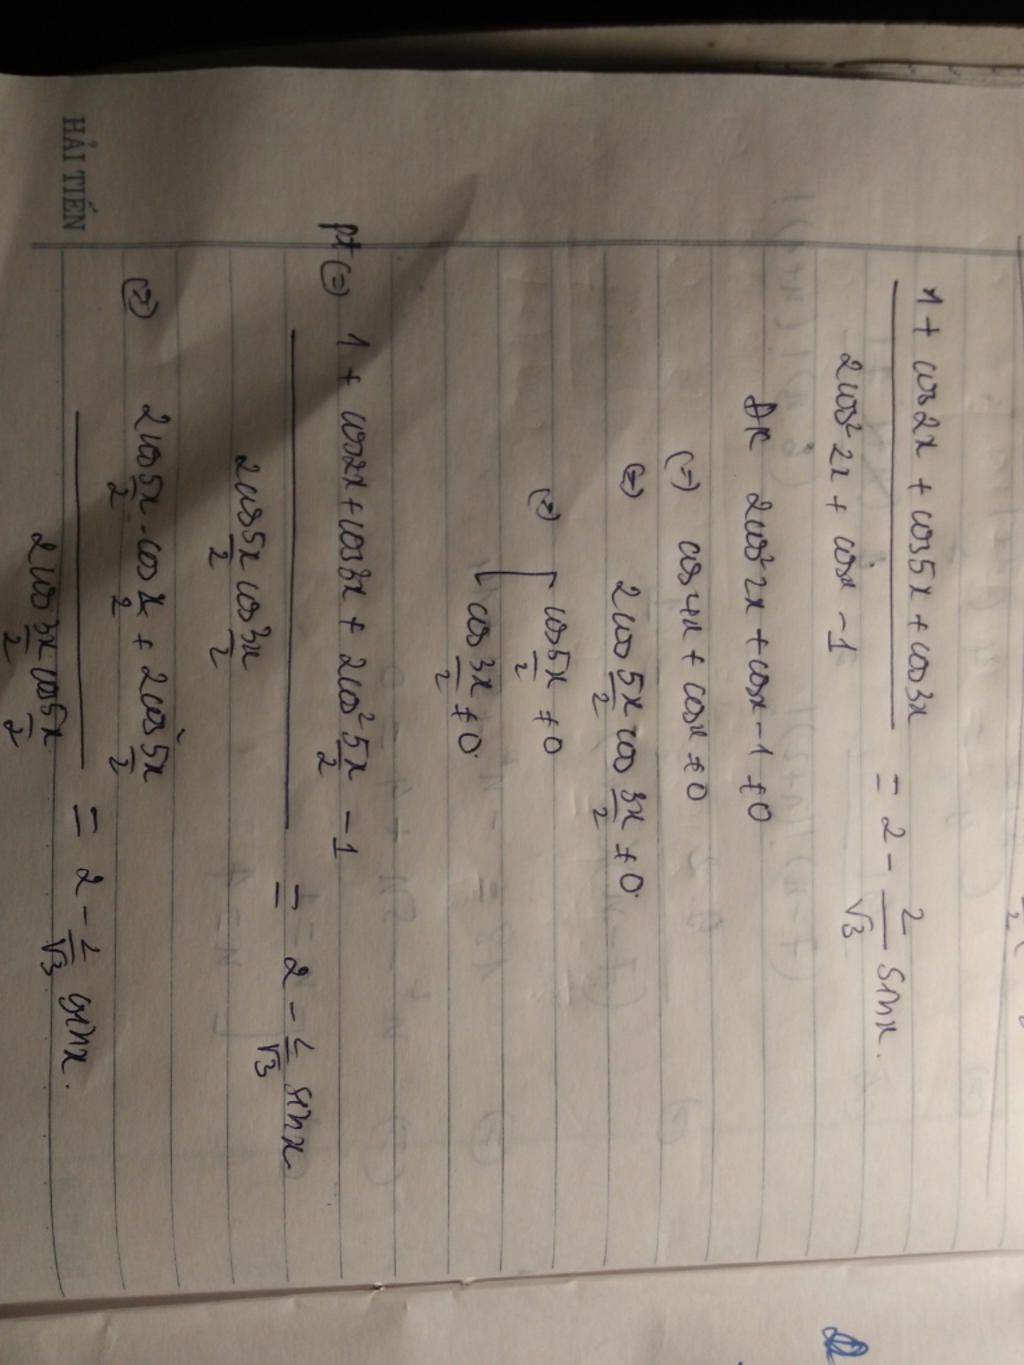 1 + cos2x + cos5x + cos3x / 2cos² 2x + cosx - 1 = 2 - 2/√3 sinx.
ĐK 2cos² 2x + cosx - 1 ≠ 0
(=) cos4x + cosx ≠ 0
(=) 2cos 5x/2 cos 3x/2 ≠ 0.
(=) [ cos 5x/2 ≠ 0
cos 3x/2 ≠ 0.
pt (=) 1 + cos2x + cos3x + 2cos² 5x/2 - 1 / 2cos 5x/2 cos 3x/2 = 2 - 2/√3 sinx
(=) 2cos 5x/2 . cos x/2 + 2cos² 5x/2 / 2cos 3x/2 cos 5x/2 = 2 - 2/√3 sinx.
HẢI TIẾN